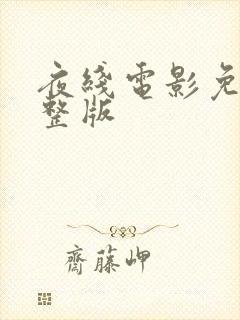 夜綫電影免
整版
齋藤岬